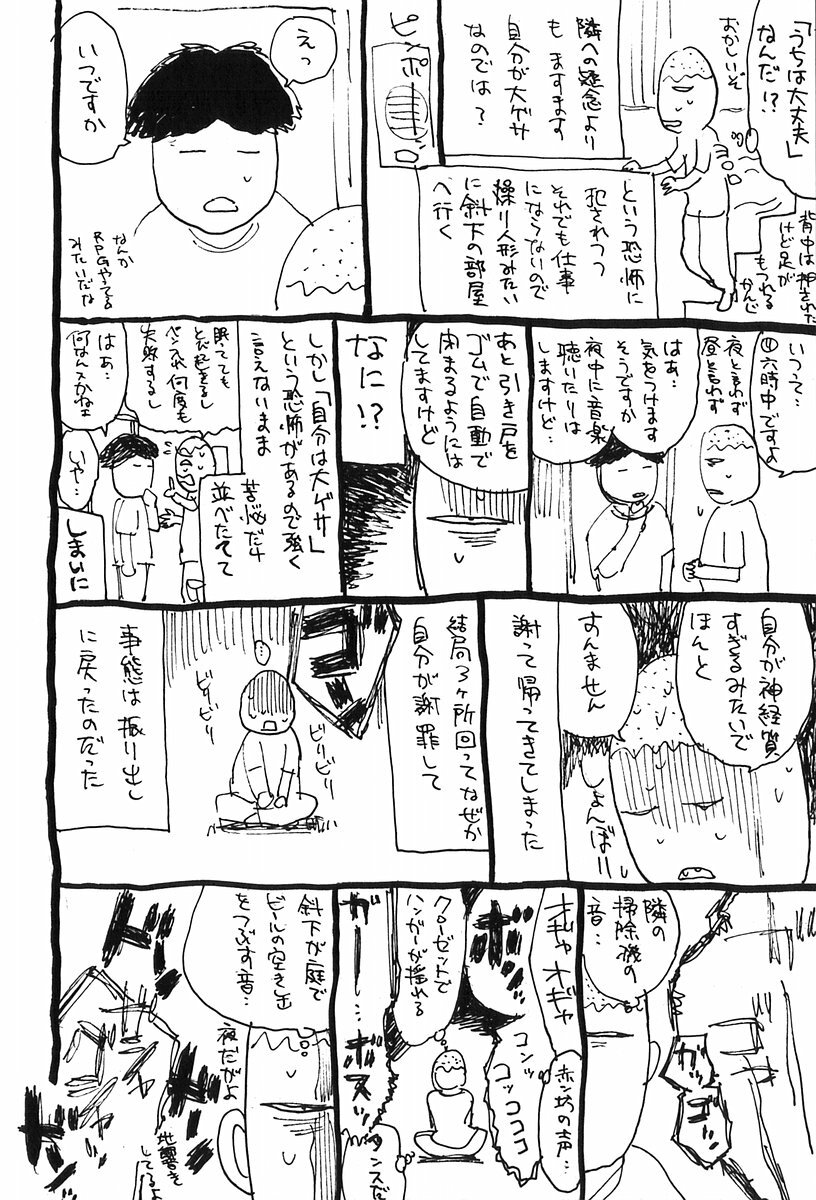 「うちは大丈夫」
なんだ!?
おかしいぞ
背中は押された
けど足が
もつれる
かんじ
隣への疑念より
も ますます
自分が大ゲサ
なのでは?
という恐怖に
犯されつつ
それでも仕事
にならないので
操り人形みたい
に斜下の部屋
へ行く
ピンポーン
えっ
いつですか
なんか
RPGやってる
みたいだな
いつって…
四六時中ですよ
夜と言わず
昼と言わず
はぁ…
気をつけます
そうですか
夜中に音楽
聴いたりは
しますけど…
あと引き戸を
ゴムで自動で
閉まるようには
してますけど
なに!?
しかし「自分は大ゲサ」
という恐怖があるので強く
言えないまま
苦悩だけ
並べたてて
眠ってても
とび起きるし
ペン入れ何度も
失敗するし
はぁ…
何なんスかねェ
いや…
しまいに
自分が神経質
すぎるみたいで
ほんと
すんません
しょんぼり
謝って帰ってきてしまった
結局3ヶ所回ってなぜか
自分が謝罪して
ゴン
…
ビリビリ
ビリビリ
事態は振り出し
に戻ったのだった
ガッ
ゴン
隣の
掃除機の
音…
オギャオギャ
赤ン坊の声…
コンッ
コッコココ
クローゼットで
ハンガーが揺れる
ガー…
タンスだ
斜下が庭で
ビールの空き缶
をつぶす音…
夜だがよ
ドドド
地響き
してるよ